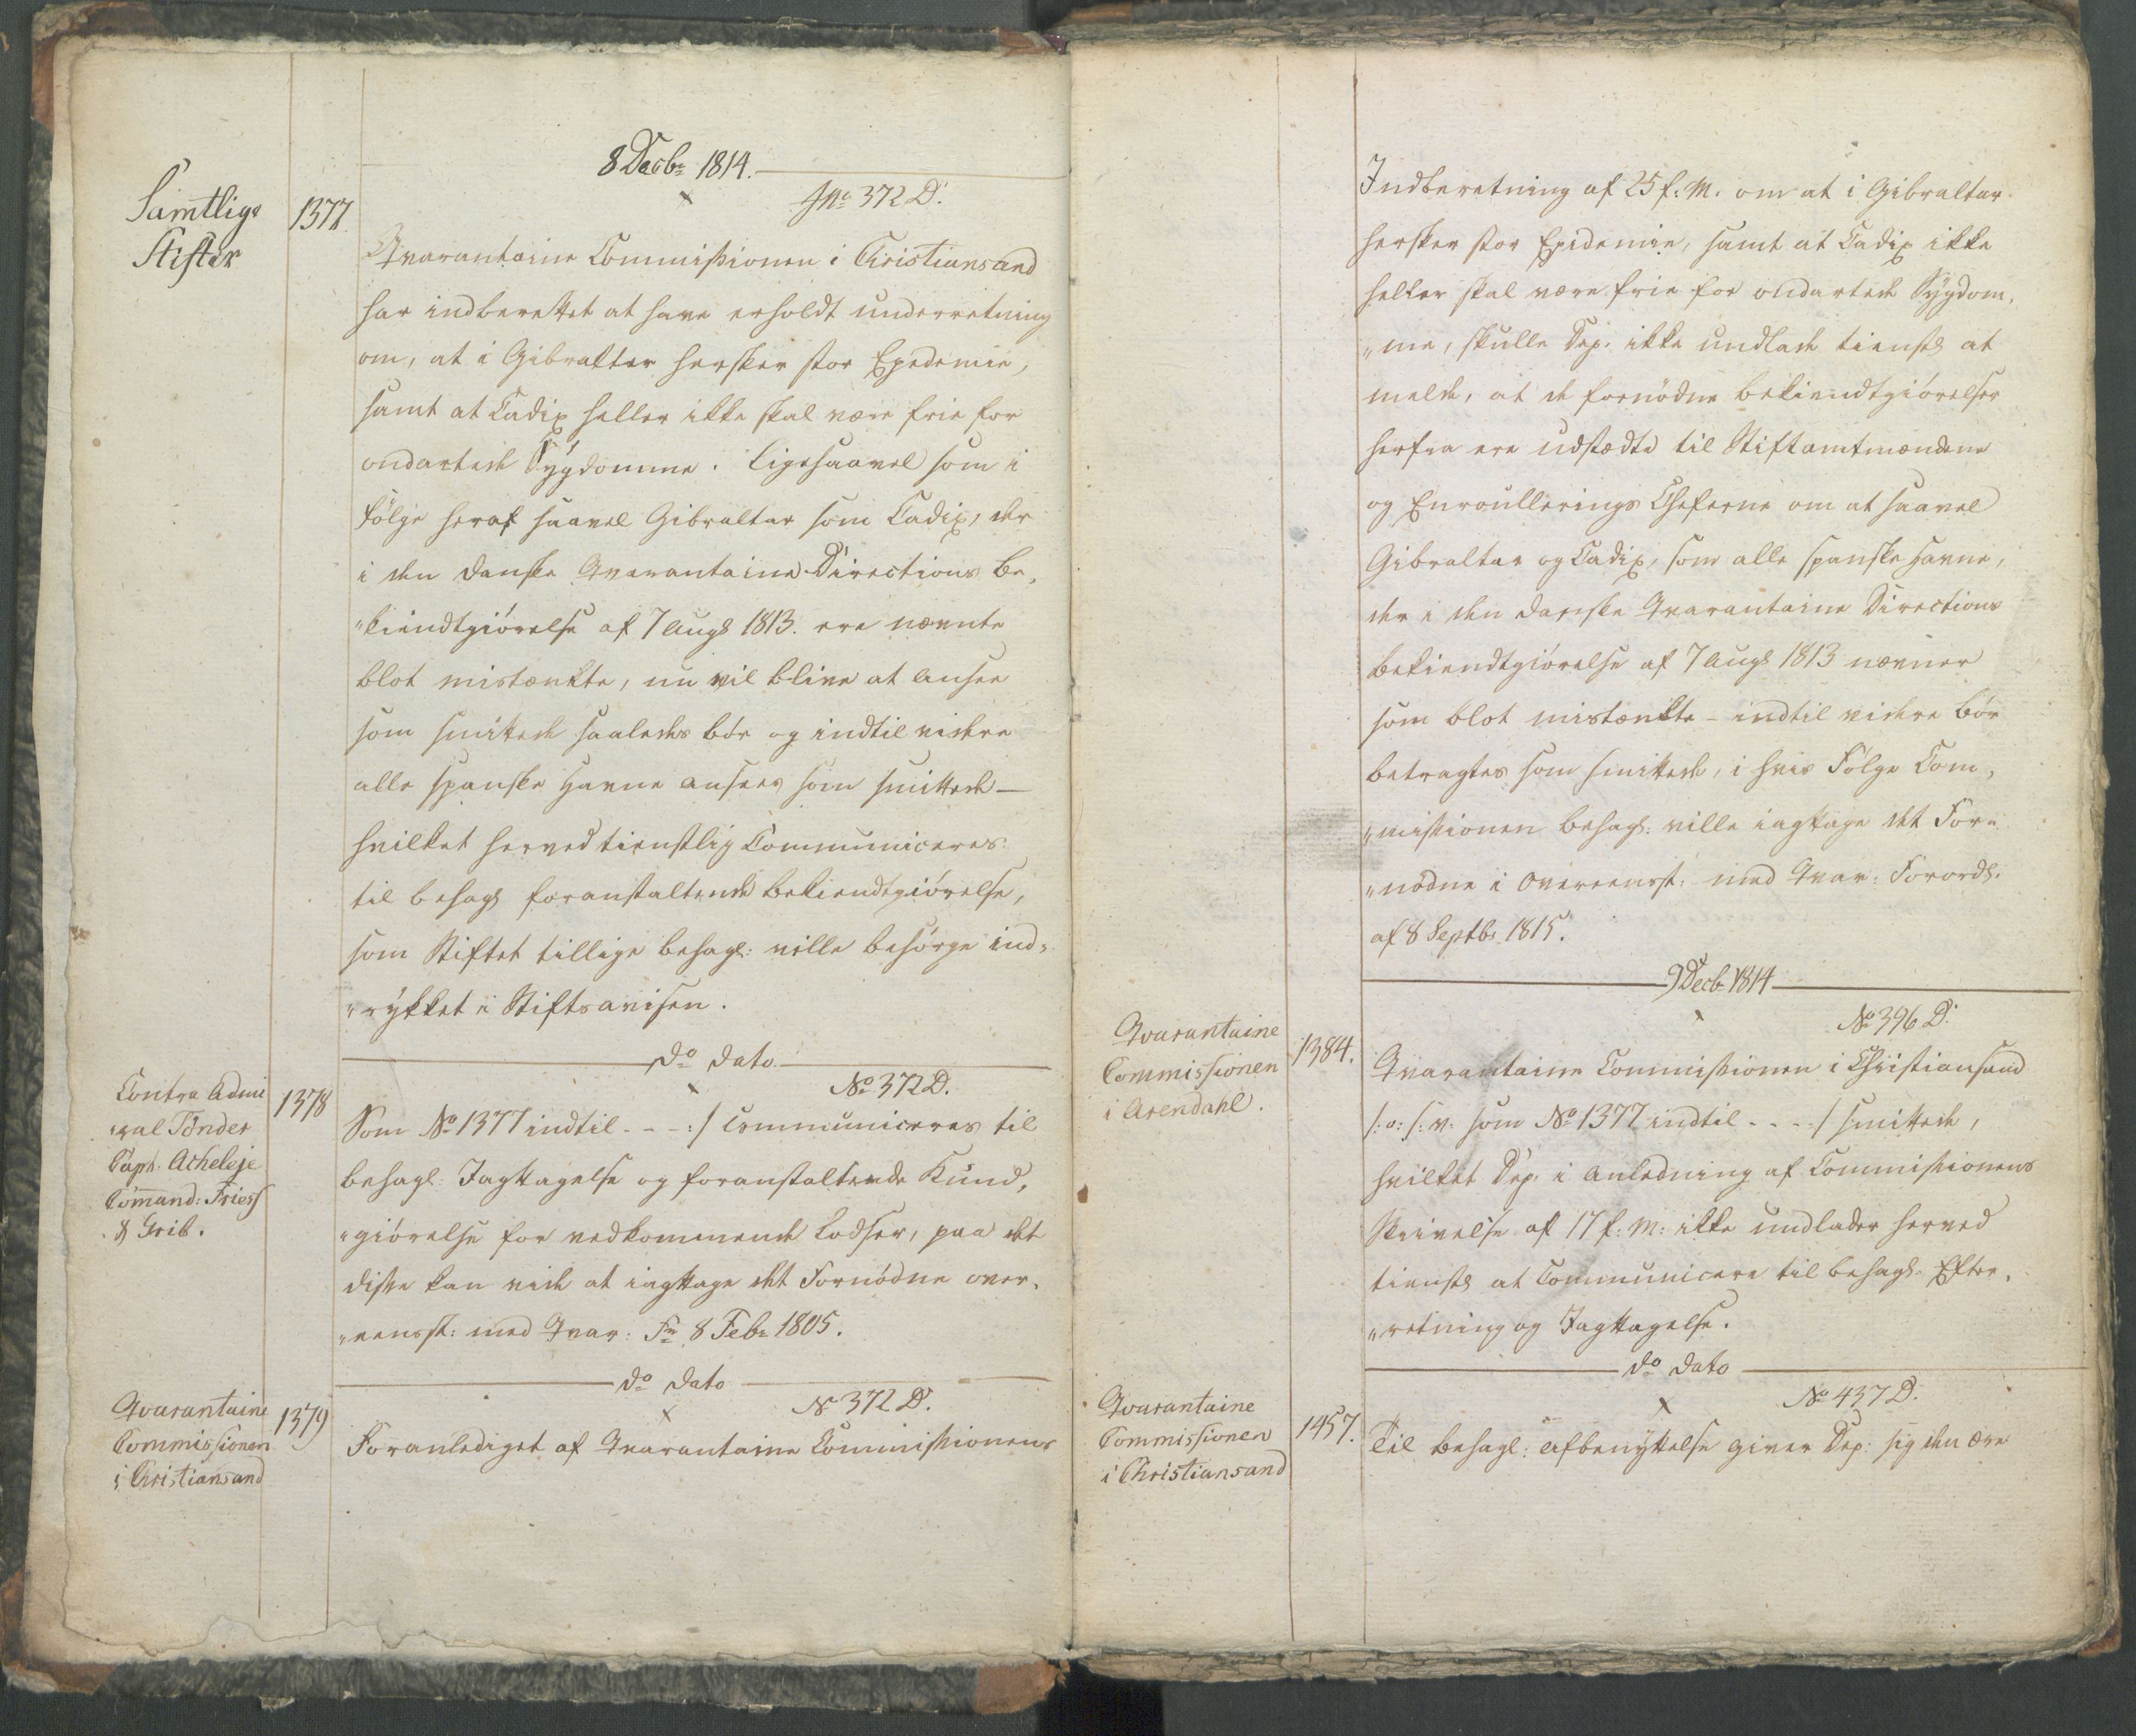 8 Decbr 1814.
Samtlige
Stifter
1377.
No 372 D.
Qvarantaine Commissionen i Christiansand
har indberettet at have erholdt underretning
om, at i Gibralter hersker stor Epedemie,
samt at Cadix heller ikke skal være frie for
ondartede Sÿgdomme. Ligesaavel som i
Følge heraf saavel Gibraltar som Cadix, der
i den danske Qvarantaine Directions Be„
„kiendtgiørelse af 7 Augs 1813. ere nævnte
blot mistænkte, nu vil blive at ansee
som smittede saaledes bør og indtil videre
alle spanske Havne ansees som smittede —
hvilket herved tienstlig Communiceres
til behagl foranstaltende Bekiendtgiørelse,
som Stiftet tillige behagl: ville besørge ind„
„rÿkket i Stiftsavisen.
do dato
Contra Admi
„ral Tønder
Capt. Acheleje
Command: Friess
& Grib.
1378
No 372 D.
Som No 1377 indtil - - - :/ Communiceres til
behagl: Jagttagelse og foranstaltende Kund„
„giørelse for vedkommende Lodser, paa det
disse kan vide at iagttage det Fornødne over„
„eensst: med Qvar: Fr 8 Febr 1805.
do dato
Qvarantaine
Commissionen
i Christiansand
1379
No 372 D.
Foranlediget af Qvarantaine Commissionens
Indberetning af 25 f: M. om at i Gibraltar
hersker stor Epidemie, samt at Cadix ikke
heller skal være frie for ondartede Sÿgdom„
„me, skulle Dep. ikke undlade tienstl at
melde, at de fornødne bekiendtgiørelser
herfra ere udstædte til Stiftamtmændene
og Enroullerings Cheferne om at saavel
Gibraltar og Cadix, som alle spanske Havne,
der i den danske Qvarantaine Directions
bekiendtgiørelse af 7 Augs 1813 nævnes
som blot mistænkte - indtil videre bør
betragtes som smittede, i hvis Følge Com„
„missionen behagl: ville iagttage det For„
„nødne i Overeensst: med Qvar: Forordn.
af 8 Septbr 1815.
9 Decbr 1814
Qvarantaine
Commissionen
i Arendahl.
1384.
No 396 D.
Qvarantaine Commissionen i Christiansand
/: o: s: v: som No 1377 indtil - - - - / smittede,
hvilket Dep: i Anledning af Commissionens
Skrivelse af 17 f: M: ikke undlader herved
tienstl at Communicere til behagl. Efter„
„retning og Jagttagelse.
do dato
Qvarantaine
Commissionen
i Christiansand
1457.
No 437 D.
Til behagl: Afbenÿttelse giver Dep: sig den ære